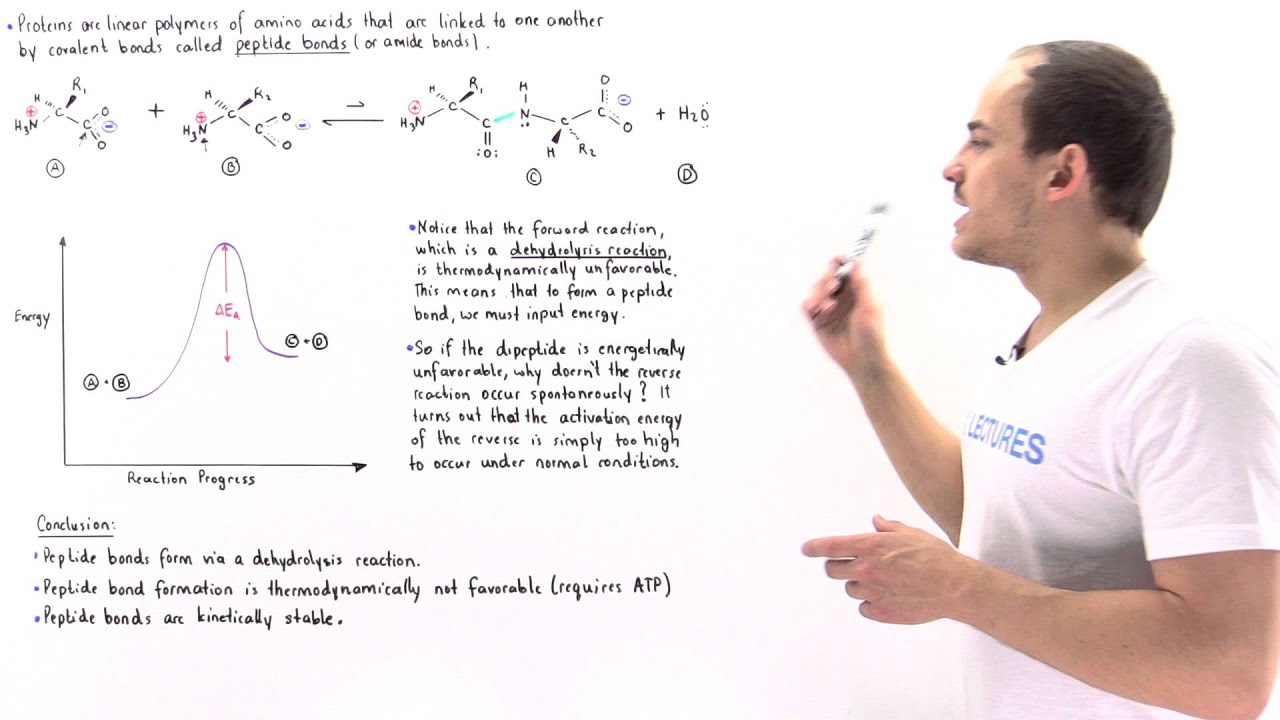 • Proteins are linear polymers of amino acids that are linked to one another
by covalent bonds called peptide bonds (or amide bonds).
H R₁ H R₂ H R₁ H O
⊕ C O + ⊕ C O ⇌ ⊕ C N C ⊖ + H₂O
H₃N C ⊖ H₃N C ⊖ H₃N C C O
O O :O: H R₂
Ⓐ Ⓑ Ⓒ Ⓓ
Energy
ΔEₐ
Ⓐ + Ⓑ
Ⓒ + Ⓓ
Reaction Progress
• Notice that the forward reaction,
which is a dehydrolysis reaction,
is thermodynamically unfavorable.
This means that to form a peptide
bond, we must input energy.
• So if the dipeptide is energetically
unfavorable, why doesn't the reverse
reaction occur spontaneously? It
turns out that the activation energy
of the reverse is simply too high
to occur under normal conditions.
Conclusion:
• Peptide bonds form via a dehydrolysis reaction.
• Peptide bond formation is thermodynamically not favorable (requires ATP)
• Peptide bonds are kinetically stable.
LECTURES